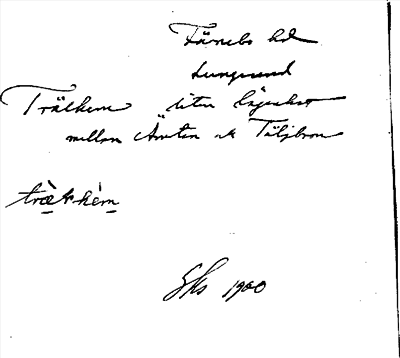 Färnebo hd
Lungsund
Trälhem liten lägenhet
mellan Åsvten ok Täljbron
trælhèm
Gks 1900